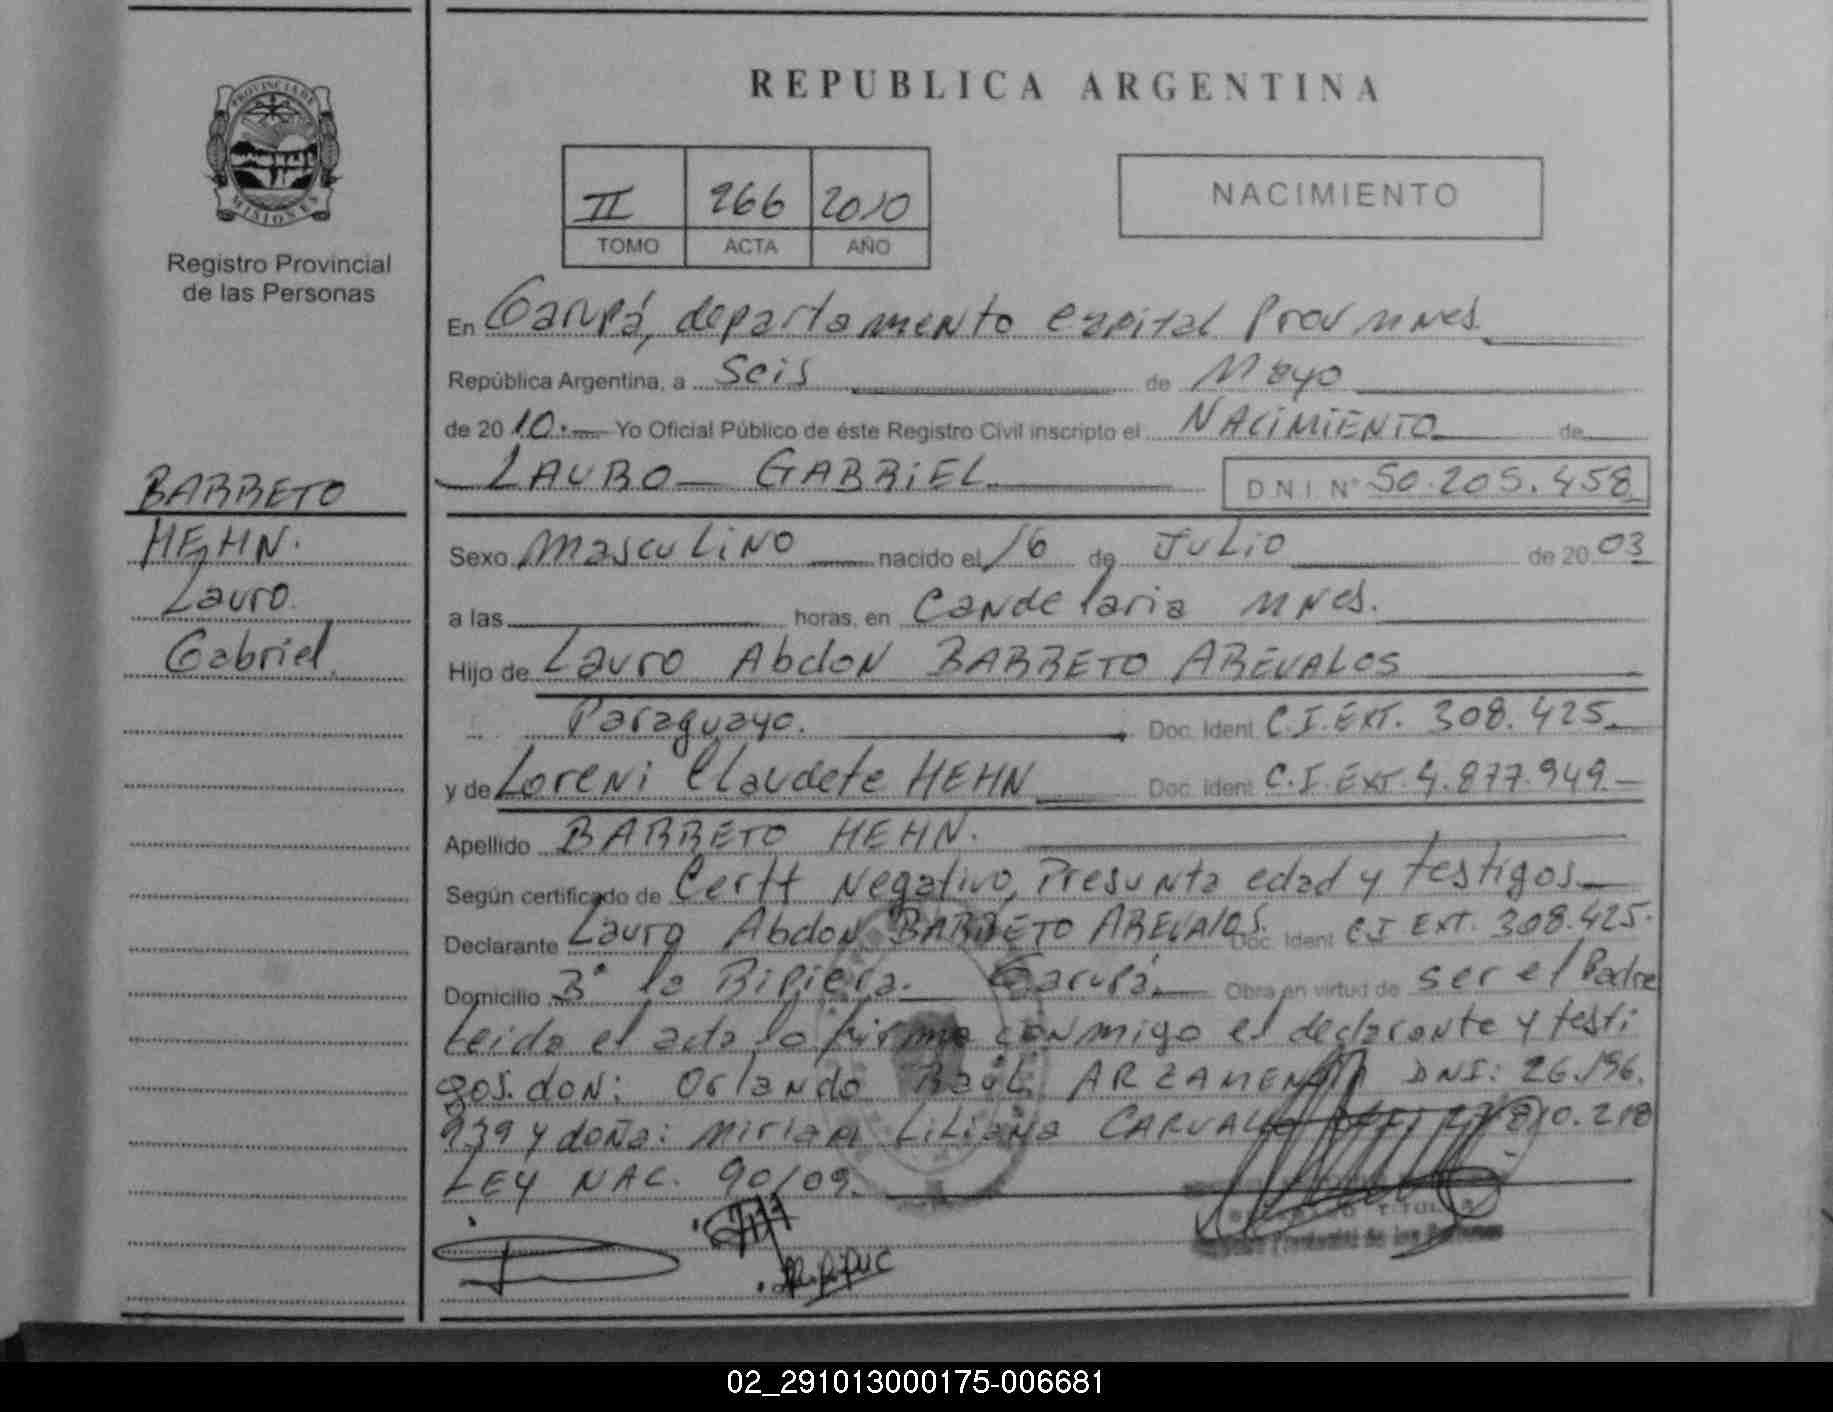 PROVINCIA DE
MISIONES
Registro Provincial
de las Personas
BARRETO
HEHN.
Lauro.
Gabriel.
REPUBLICA ARGENTINA
II 266 2010
TOMO ACTA AÑO
NACIMIENTO
En Garupá, departamento capital Prov mnes.
República Argentina, a Seis de Mayo
de 20 10.- Yo Oficial Público de éste Registro Civil inscripto el NACIMIENTO de
LAURO GABRIEL D N I N° 50.205.458
Sexo Masculino nacido el 16 de Julio de 20 03
a las horas, en Candelaria mnes.
Hijo de Lauro Abdon BARRETO AREVALOS
Paraguayo. Doc. Ident C.I.EXT. 308.425.
y de Loreni Claudete HEHN Doc. Ident C.I.EXT. 4.877.949.-
Apellido BARRETO HEHN.
Según certificado de Certt Negativo, Presunta edad y testigos
Declarante Lauro Abdon BARRETO AREVALOS. Doc. Ident CI EXT. 308.425.
Domicilio B° la Ribiera. Garupá. Obra en virtud de ser el Padre
Leida el acta la firma conmigo el declarante y testi
gos. don: Orlando Raúl ARZAMENDIA DNI: 26.196.
939 y doña: Miriam Liliana CARVALLO 210.218
LEY NAC. 90/09.
TITULAR
Provincial de las Personas
02_291013000175-006681